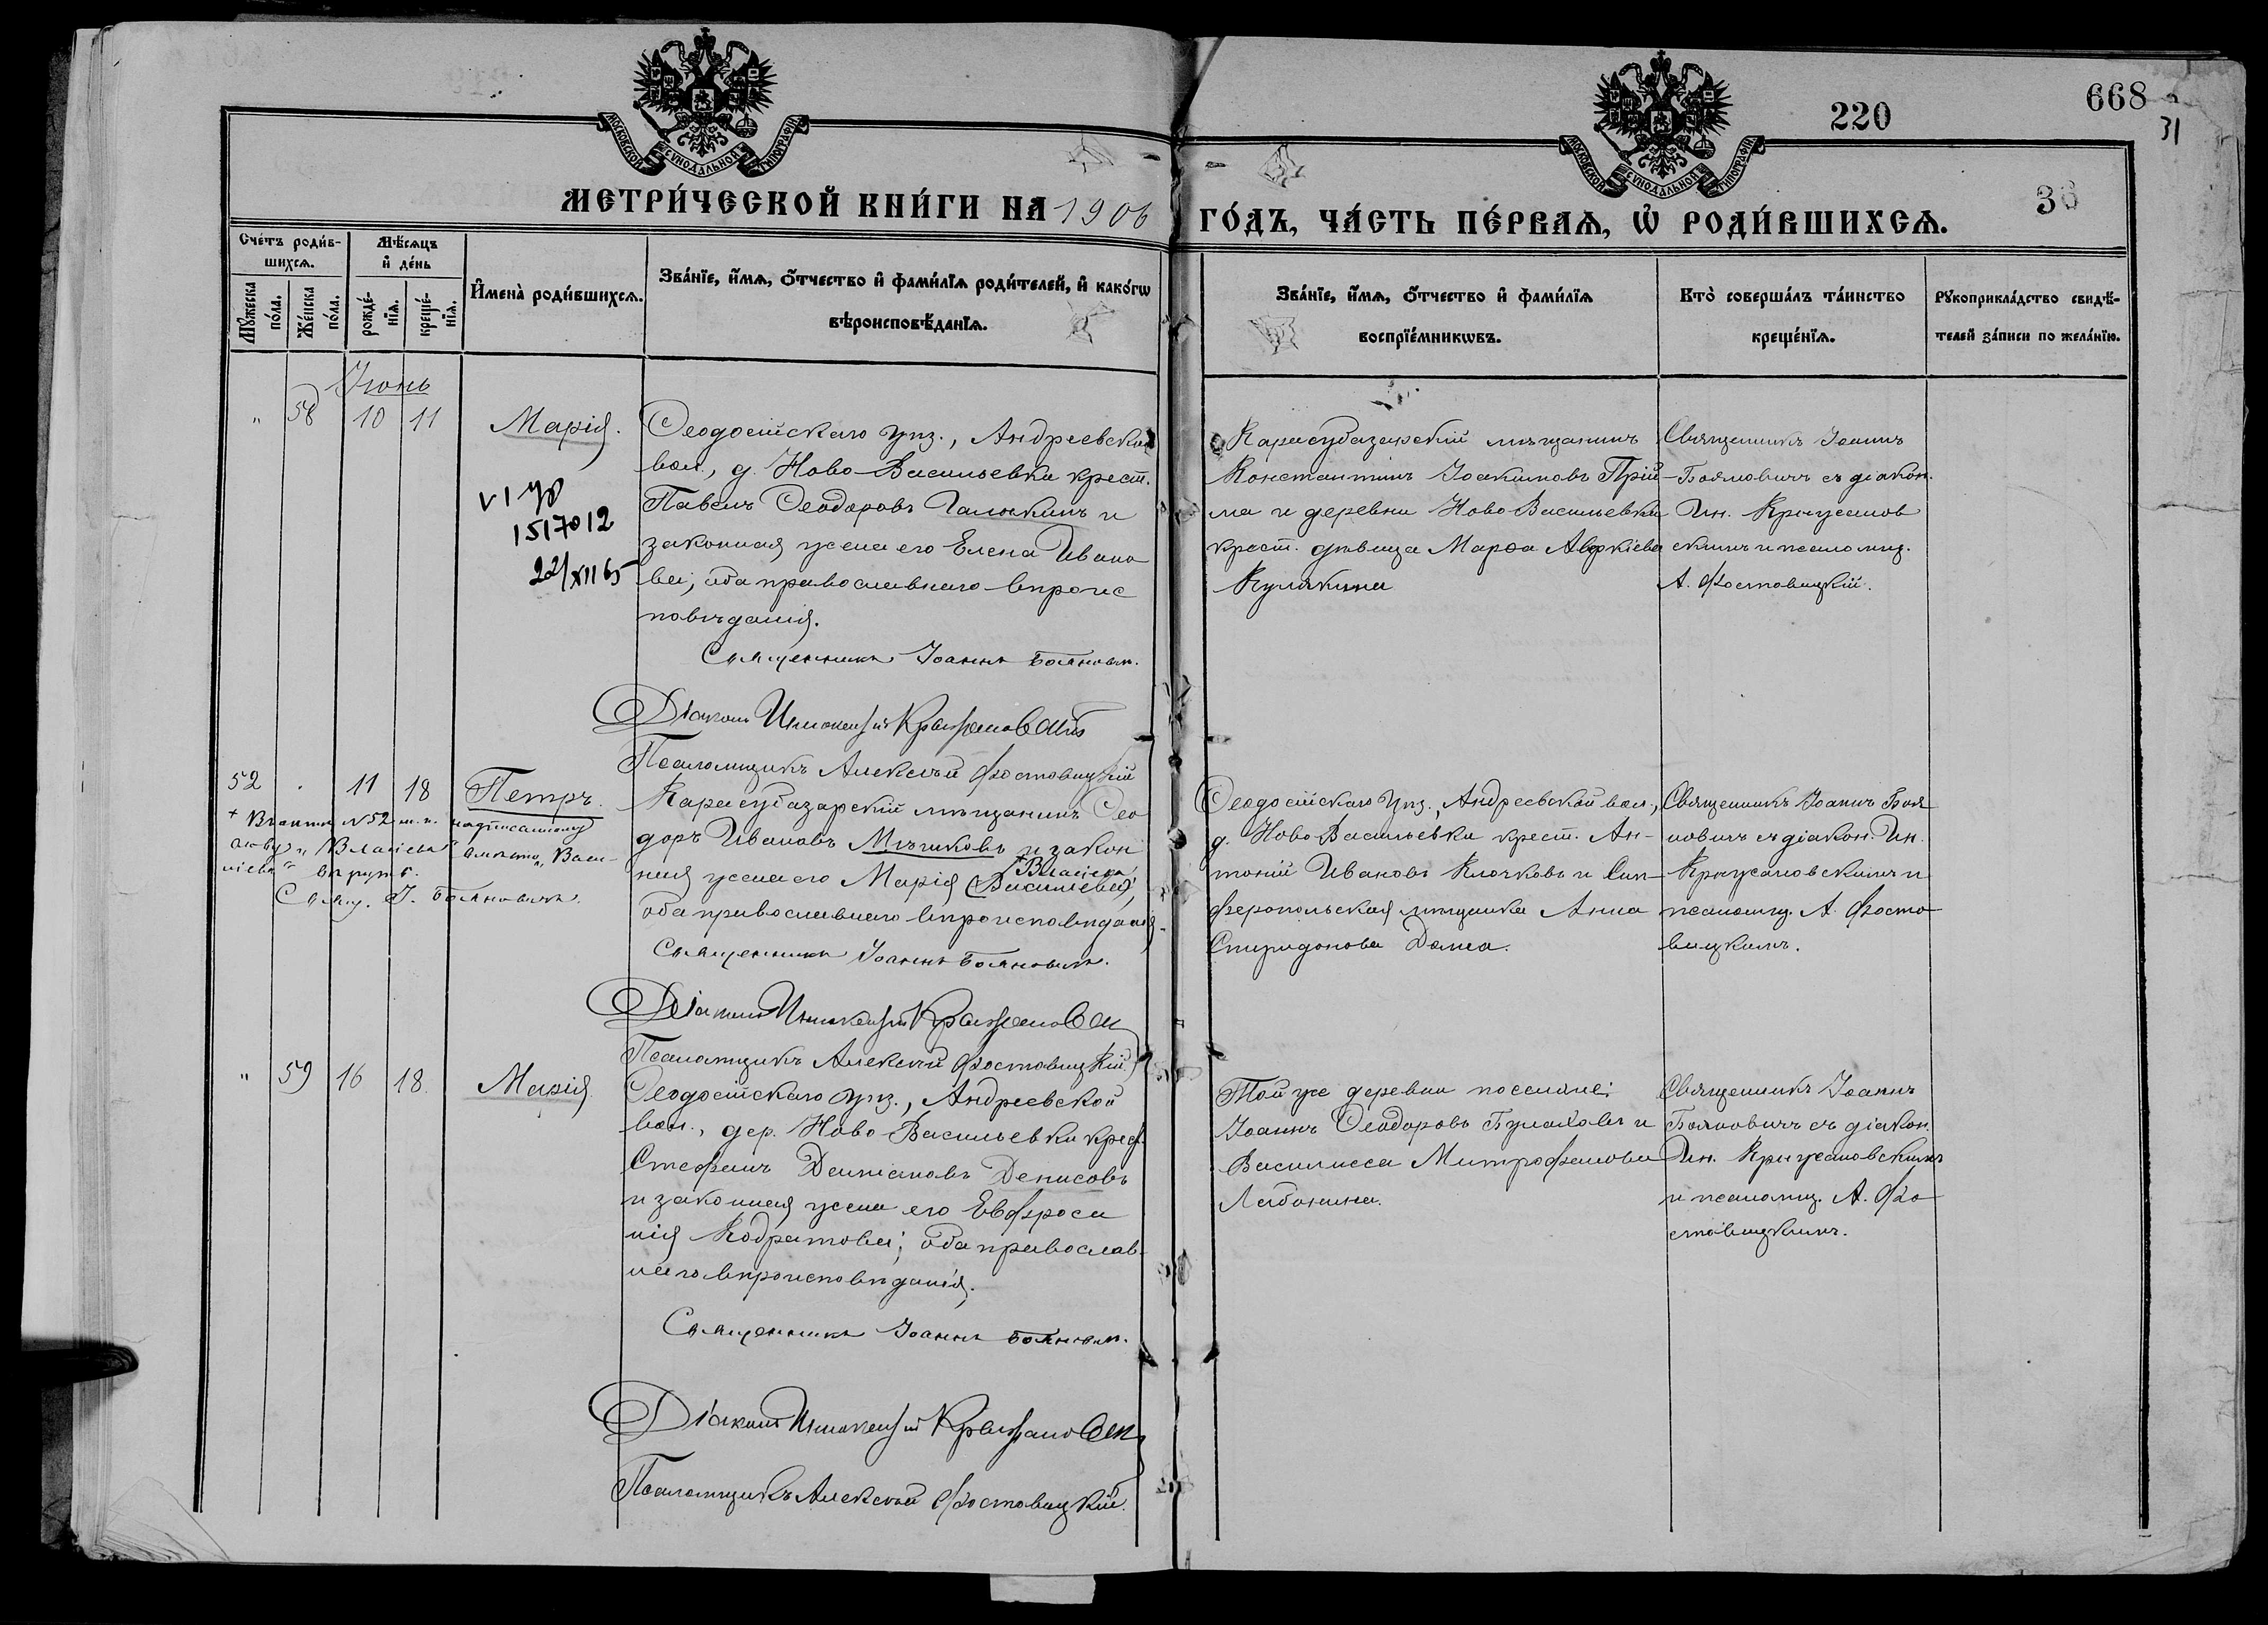 МОСКОВСКОЙ СѴНОДАЛЬНОЙ ТИПОГРАФІИ
МОСКОВСКОЙ СѴНОДАЛЬНОЙ ТИПОГРАФІИ
220
668
31
36
МЕТРИ́ЧЕСКОЙ КНИ́ГИ НА 1906
ГО́ДЪ, ЧА́СТЬ ПЕ́РВАѦ, Ѡ҆ РОДИ́ВШИХСѦ.
Сче́тъ роди́в-
шихсѧ.
Мꙋ́жеска по́ла.
Же́нска по́ла.
Мѣ́сѧцъ
и҆ де́нь
рожде́-
нїѧ.
креще́-
нїѧ.
И҆мена̀ роди́вшихсѧ.
Зва́нїе, и҆́мѧ, ѻ҆́тчество и҆ фами́лїѧ роди́телей, и҆ како́гѡ
вѣроисповѣ́данїѧ.
Зва́нїе, и҆́мѧ, ѻ҆́тчество и҆ фами́лїѧ
воспрїе́мникѡвъ.
Кто̀ соверша́лъ та́инство
креще́нїѧ.
Рꙋкоприкла́дство свидѣ́-
телей за́писи по жела́нїю.
Іюнь
" 58 10 11
Марія.
1517012
22/XII 65
Ѳеодосійскаго уѣз., Андреевской
вол., д. Ново-Васильевки крест.
Павелъ Ѳеодоровъ Галочкинъ и
законная жена его Елена Ивано
ва; оба православнаго вѣроис
повѣданія.
Священникъ Іоаннъ Бояновичъ.
Діаконъ Иннокентій Крыжановскій
Псаломщикъ Алексѣй Фостовицкій
Карасубазарскій мѣщанинъ
Константинъ Іоакимовъ Прій-
ма и деревни Ново Васильевки
крест. дѣвица Марѳа Авфкіева
Кулякина
Священникъ Іоаннъ
Бояновичъ съ діакон.
Ин. Крыжанов
скимъ и псаломщ.
А. Фостовицкій.
52 . 11 18
Петръ.
+ Въ актѣ № 52 м. п. надписанному
слову "Власіева" вмѣсто "Васи-
ліева" вѣрить.
Свящ. І. Бояновичъ.
Карасубазарскій мѣщанинъ Ѳео
доръ Ивановъ Мѣшковъ и закон
ная жена его Марія (Васильева)
+ Власіева
оба православнаго вѣроисповѣданія.
Священникъ Іоаннъ Бояновичъ.
Діаконъ Иннокентій Крыжановскій
Псаломщикъ Алексѣй Фостовицкій.
Ѳеодосійскаго уѣз., Андреевской вол.,
д. Ново Васильевки крест. Ан-
тоній Ивановъ Клочковъ и Сим-
феропольская мѣщанка Анна
Спиридонова Дома.
Священникъ Іоаннъ Боя
новичъ съ діакон. Ин.
Крыжановскимъ и
псаломщ. А. Фосто
вицкимъ.
" 59 16 18.
Марія
Ѳеодосійскаго уѣз., Андреевской
вол., дер. Ново Васильевки крест.
Стефанъ Даміановъ Денисовъ
и законная жена его Евфроси
нія Кодратова; оба православ-
наго вѣроисповѣданія.
Священникъ Іоаннъ Бояновичъ.
Діаконъ Иннокентій Крыжановскій
Псаломщикъ Алексѣй Фостовицкій.
Той же деревни поселяне:
Іоаннъ Ѳеодоровъ Булаховъ и
Василисса Митрофанова
Лабонина.
Священникъ Іоаннъ
Бояновичъ съ діакон.
Ин. Крыжановскимъ
и псаломщ. А. Фо
стовицкимъ.